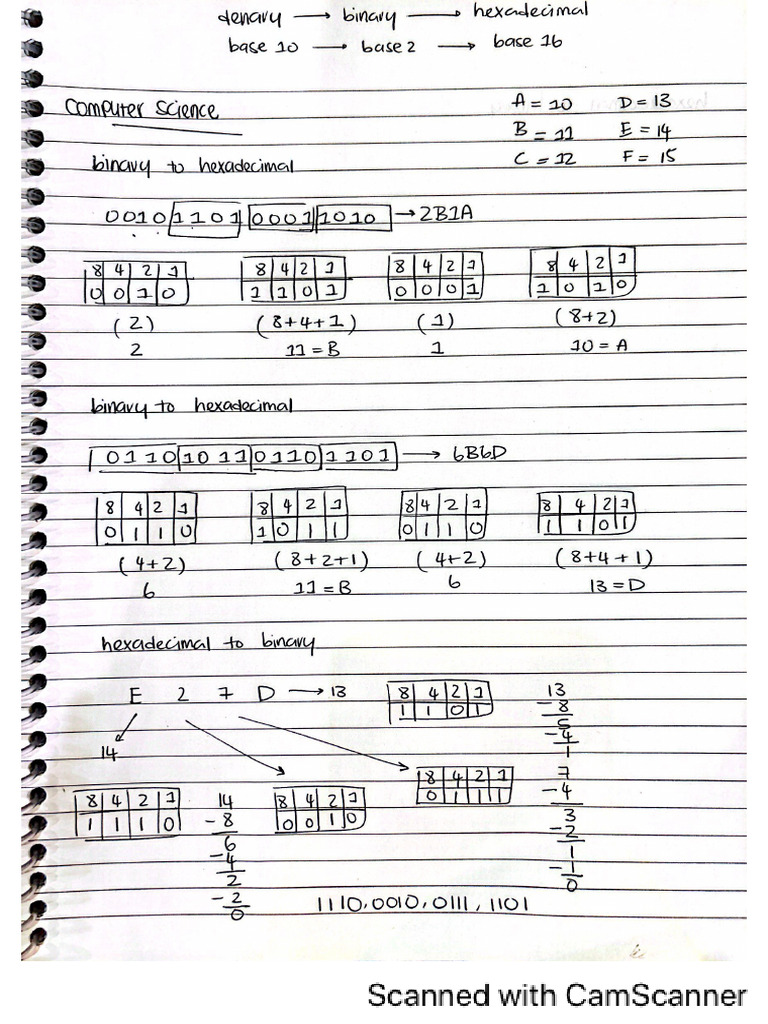 denary → binary → hexadecimal
base 10 → base 2 → base 16
Computer Science
A = 10 D = 13
B = 11 E = 14
C = 12 F = 15
binary to hexadecimal
0010 1101 0001 1010 → 2B1A
8 4 2 1 8 4 2 1 8 4 2 1 8 4 2 1
0 0 1 0 1 1 0 1 0 0 0 1 1 0 1 0
(2) (8+4+1) (1) (8+2)
2 11 = B 1 10 = A
binary to hexadecimal
0110 1011 0110 1101 → 6B6D
8 4 2 1 8 4 2 1 8 4 2 1 8 4 2 1
0 1 1 0 1 0 1 1 0 1 1 0 1 1 0 1
(4+2) (8+2+1) (4+2) (8+4+1)
6 11 = B 6 13 = D
hexadecimal to binary
E 2 7 D → 13 8 4 2 1 13
1 1 0 1 - 8
5
14 - 4
1
8 4 2 1 7
0 1 1 1 - 4
8 4 2 1 14 8 4 2 1 3
1 1 1 0 - 8 0 0 1 0 - 2
6 1
- 4 - 1
2 0
- 2
0 1110, 0010, 0111, 1101
Scanned with CamScanner